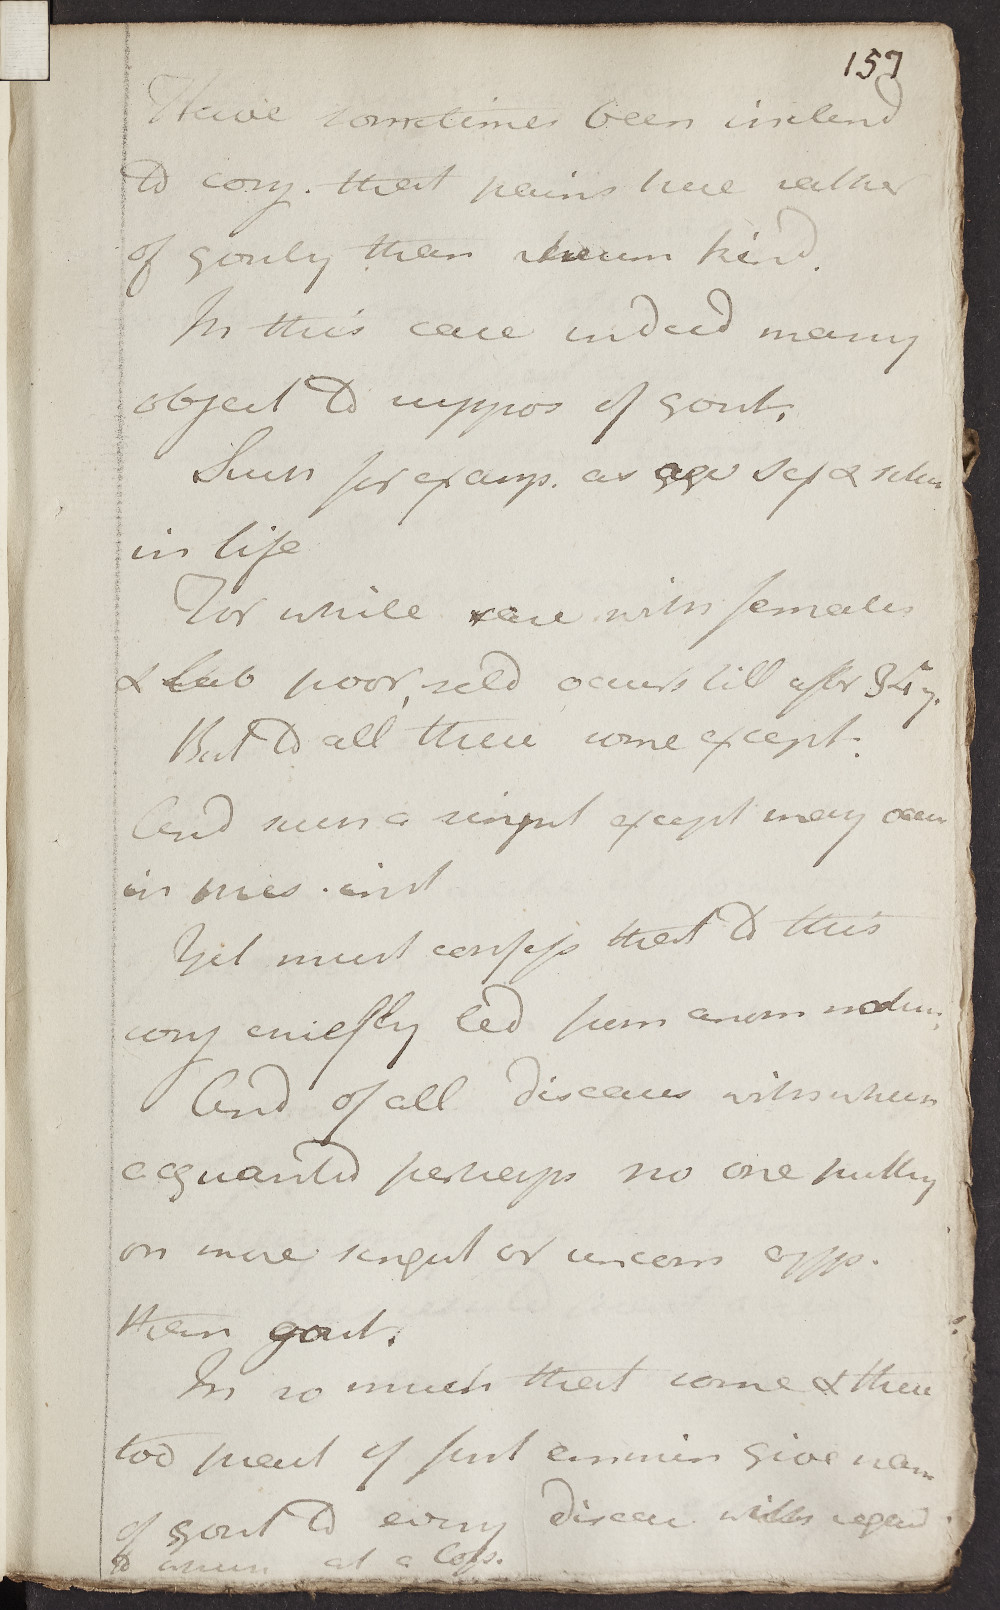 157
Have sometimes been inclend
to conj. that pains here rather
of gouty than rheum kind.
In this case indeed many
object to suppos of gout.
Such for examp. as age sex &
in life
For while rare with females
& lab poor, seld occurs till after 34 y.
But to all these some except.
And such a singul except may occur
in pres. inst
Yet must confess that to this
conj chiefly led from anom
And of all diseases with whch
acquainted perhaps no one putting
on more singul or uncom app.
than gout.
In so much that some & these
too pract of first eminen give nam
of gout to every disease with regard
to whch at a loss.